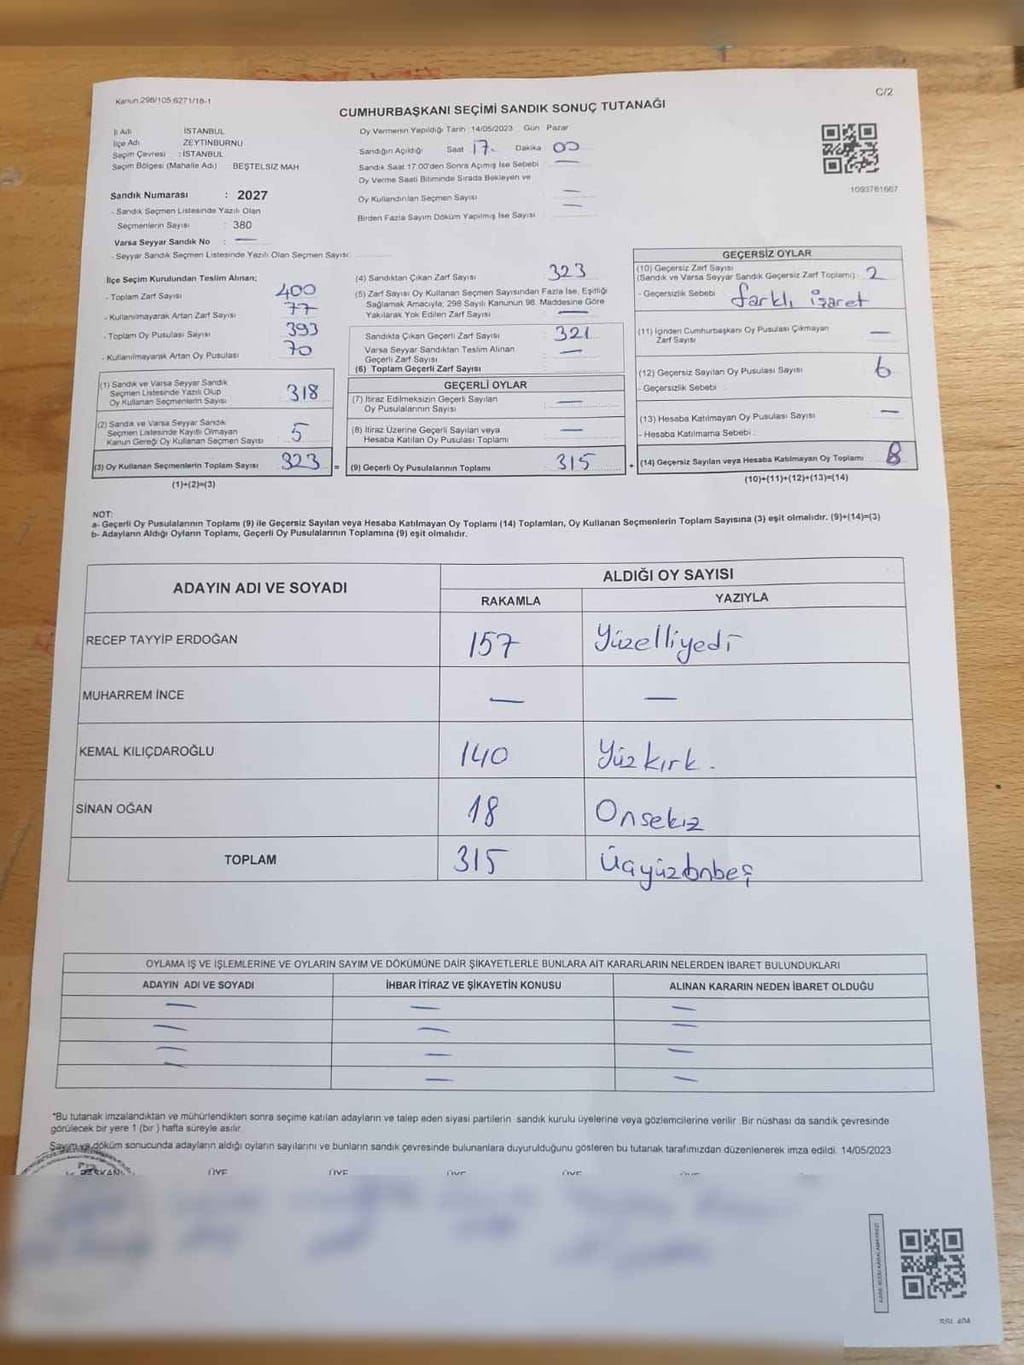 Kanun:298/105:6271/18-1
C/2
CUMHURBAŞKANI SEÇİMİ SANDIK SONUÇ TUTANAĞI
İl Adı : İSTANBUL
İlçe Adı : ZEYTİNBURNU
Seçim Çevresi : İSTANBUL
Seçim Bölgesi (Mahalle Adı) : BEŞTELSİZ MAH
Sandık Numarası : 2027
- Sandık Seçmen Listesinde Yazılı Olan
Seçmenlerin Sayısı : 380
Varsa Seyyar Sandık No : —
- Seyyar Sandık Seçmen Listesinde Yazılı Olan Seçmen Sayısı:
Oy Vermenin Yapıldığı Tarih :14/05/2023 Gün : Pazar
Sandığın Açıldığı Saat 17. Dakika 00
Sandık Saat 17:00'den Sonra Açılmış İse Sebebi : —
Oy Verme Saati Bitiminde Sırada Bekleyen ve
Oy Kullandırılan Seçmen Sayısı —
Birden Fazla Sayım Döküm Yapılmış İse Sayısı —
1093761667
İlçe Seçim Kurulundan Teslim Alınan;
- Toplam Zarf Sayısı 400
- Kullanılmayarak Artan Zarf Sayısı 77
- Toplam Oy Pusulası Sayısı 393
- Kullanılmayarak Artan Oy Pusulası 70
(1) Sandık ve Varsa Seyyar Sandık
Seçmen Listesinde Yazılı Olup
Oy Kullanan Seçmenlerin Sayısı 318
(2) Sandık ve Varsa Seyyar Sandık
Seçmen Listesinde Kayıtlı Olmayan
Kanun Gereği Oy Kullanan Seçmen Sayısı 5
(3) Oy Kullanan Seçmenlerin Toplam Sayısı 323 =
(1)+(2)=(3)
(4) Sandıktan Çıkan Zarf Sayısı 323
(5) Zarf Sayısı Oy Kullanan Seçmen Sayısından Fazla İse, Eşitliği
Sağlamak Amacıyla, 298 Sayılı Kanunun 98. Maddesine Göre
Yakılarak Yok Edilen Zarf Sayısı —
Sandıkta Çıkan Geçerli Zarf Sayısı 321
Varsa Seyyar Sandıktan Teslim Alınan
Geçerli Zarf Sayısı —
(6) Toplam Geçerli Zarf Sayısı
GEÇERLİ OYLAR
(7) İtiraz Edilmeksizin Geçerli Sayılan
Oy Pusulalarının Sayısı —
(8) İtiraz Üzerine Geçerli Sayılan veya
Hesaba Katılan Oy Pusulası Toplamı —
(9) Geçerli Oy Pusulalarının Toplamı 315 +
GEÇERSİZ OYLAR
(10) Geçersiz Zarf Sayısı
(Sandık ve Varsa Seyyar Sandık Geçersiz Zarf Toplamı) : 2
- Geçersizlik Sebebi : farklı işaret
(11) İçinden Cumhurbaşkanı Oy Pusulası Çıkmayan
Zarf Sayısı —
(12) Geçersiz Sayılan Oy Pusulası Sayısı 6
- Geçersizlik Sebebi :
(13) Hesaba Katılmayan Oy Pusulası Sayısı —
- Hesaba Katılmama Sebebi :
(14) Geçersiz Sayılan veya Hesaba Katılmayan Oy Toplamı 8
(10)+(11)+(12)+(13)=(14)
NOT:
a- Geçerli Oy Pusulalarının Toplamı (9) ile Geçersiz Sayılan veya Hesaba Katılmayan Oy Toplamı (14) Toplamları, Oy Kullanan Seçmenlerin Toplam Sayısına (3) eşit olmalıdır. (9)+(14)=(3)
b- Adayların Aldığı Oyların Toplamı, Geçerli Oy Pusulalarının Toplamına (9) eşit olmalıdır.
ADAYIN ADI VE SOYADI ALDIĞI OY SAYISI
RAKAMLA YAZIYLA
RECEP TAYYİP ERDOĞAN 157 Yüzelliyedi
MUHARREM İNCE — —
KEMAL KILIÇDAROĞLU 140 Yüzkırk.
SİNAN OĞAN 18 Onsekiz
TOPLAM 315 Üçyüzonbeş
OYLAMA İŞ VE İŞLEMLERİNE VE OYLARIN SAYIM VE DÖKÜMÜNE DAİR ŞİKAYETLERLE BUNLARA AİT KARARLARIN NELERDEN İBARET BULUNDUKLARI
ADAYIN ADI VE SOYADI İHBAR İTİRAZ VE ŞİKAYETİN KONUSU ALINAN KARARIN NEDEN İBARET OLDUĞU
— — —
— — —
— — —
— — —
*Bu tutanak imzalandıktan ve mühürlendikten sonra seçime katılan adayların ve talep eden siyasi partilerin sandık kurulu üyelerine veya gözlemcilerine verilir. Bir nüshası da sandık çevresinde
görülecek bir yere 1 (bir) hafta süreyle asılır.
Sayım ve döküm sonucunda adayların aldığı oyların sayılarını ve bunların sandık çevresinde bulunanlara duyurulduğunu gösteren bu tutanak tarafımızdan düzenlenerek imza edildi. 14/05/2023
BAŞKAN ÜYE ÜYE ÜYE ÜYE ÜYE